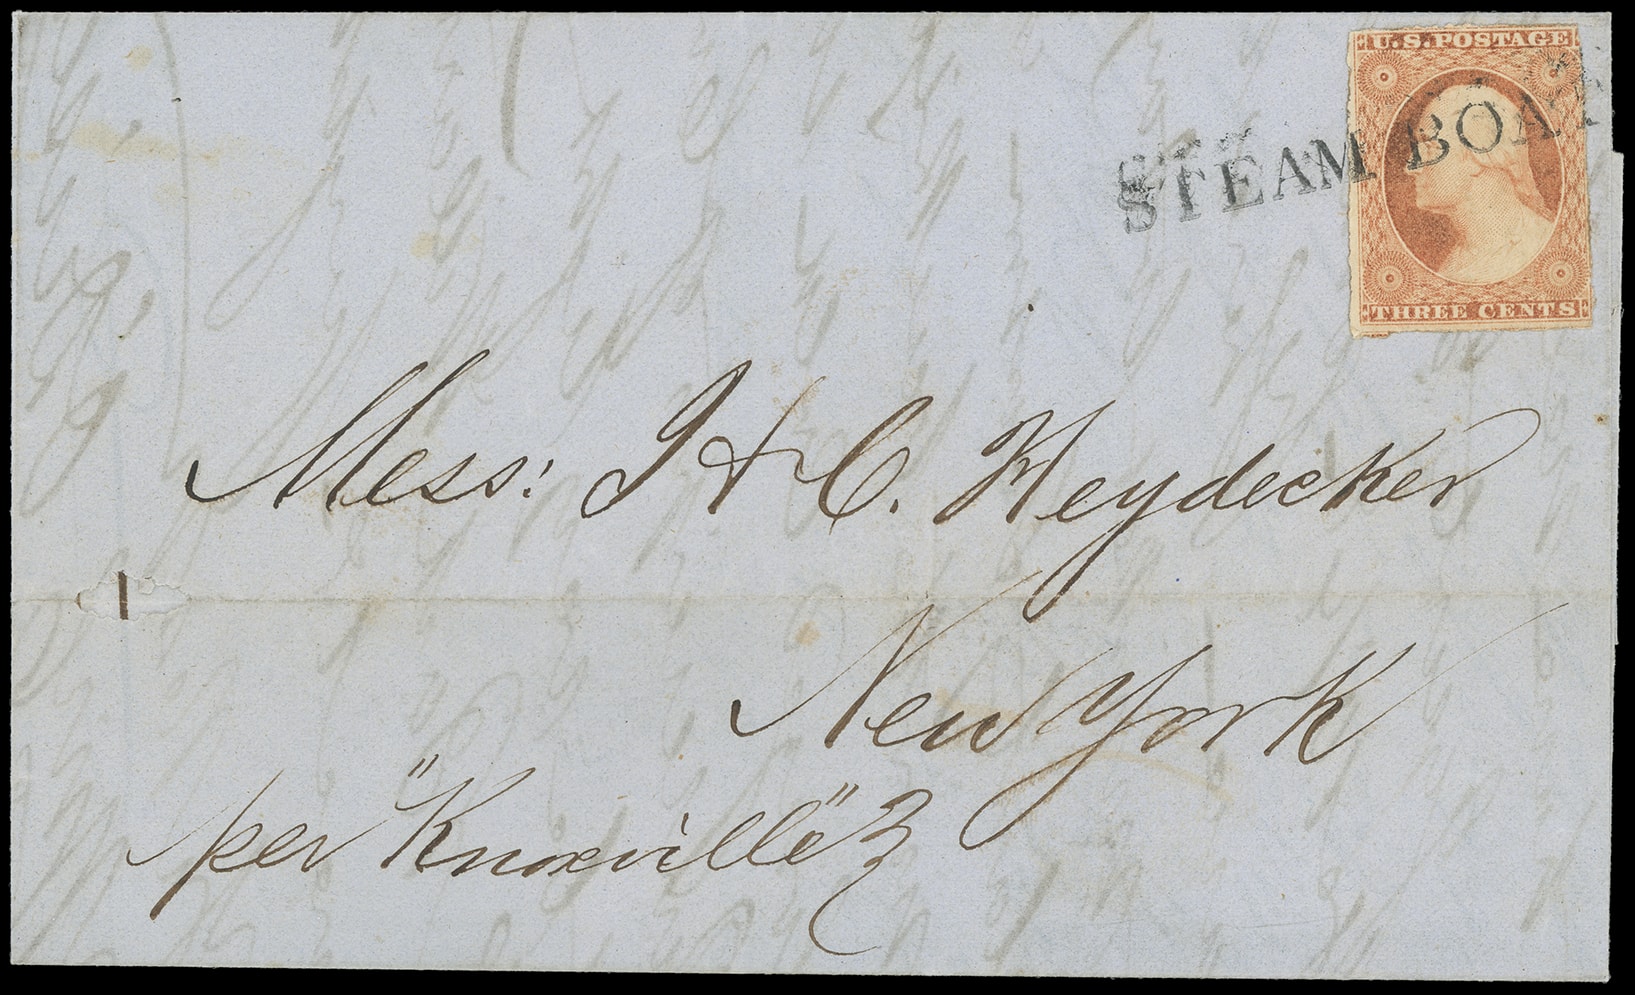 U.S. POSTAGE
STEAM BOAT
THREE CENTS
Mess: H & C. Heydecker
New York
per "Knoxville"